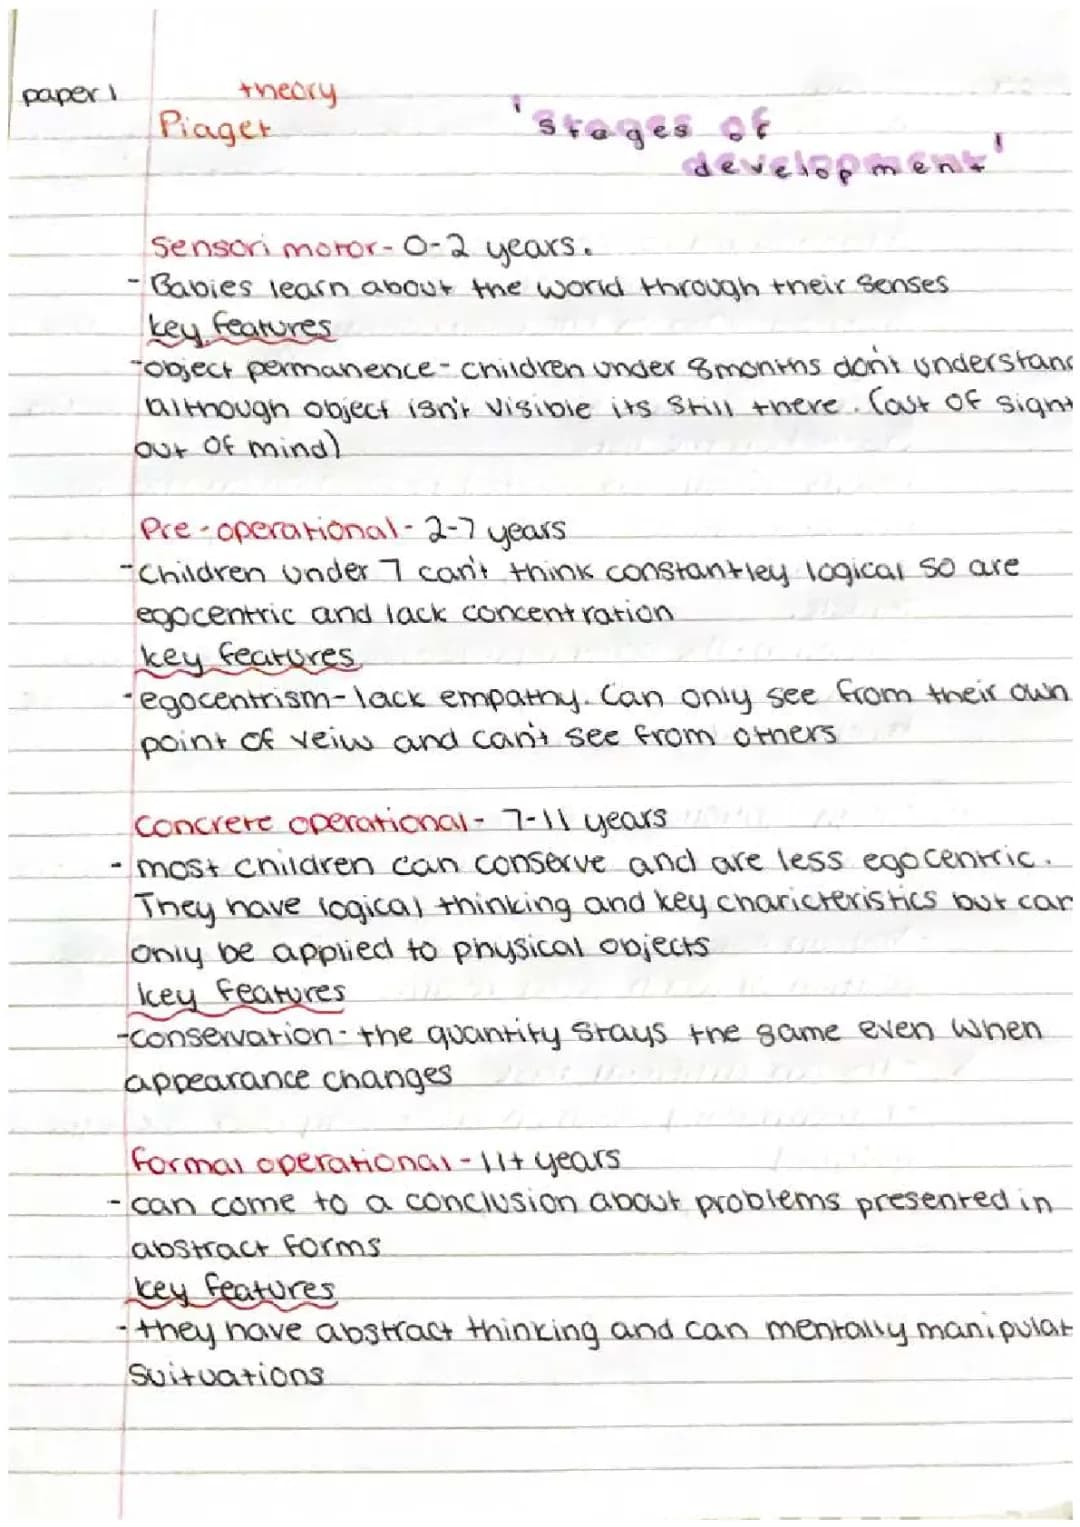 paper 1
theory
Piaget
'Stages of
development'
Sensori motor - 0-2 years.
- Babies learn about the world through their senses
key features
- object permanence - children under 8 months don't understand
although object isn't visible its still there. (out of sight
out of mind)
Pre-operational - 2-7 years
- Children under 7 can't think constantley logical so are
egocentric and lack concentration
key features
- egocentrism - lack empathy. Can only see from their own
point of veiw and can't see from others
Concrete operational - 7-11 years
- most children can conserve and are less egocentric.
They have logical thinking and key charicteristics but can
only be applied to physical objects
key features
- conservation - the quantity stays the same even when
appearance changes
formal operational - 11+ years
- can come to a conclusion about problems presented in
abstract forms
key features
- they have abstract thinking and can mentally manipulat
Suituations